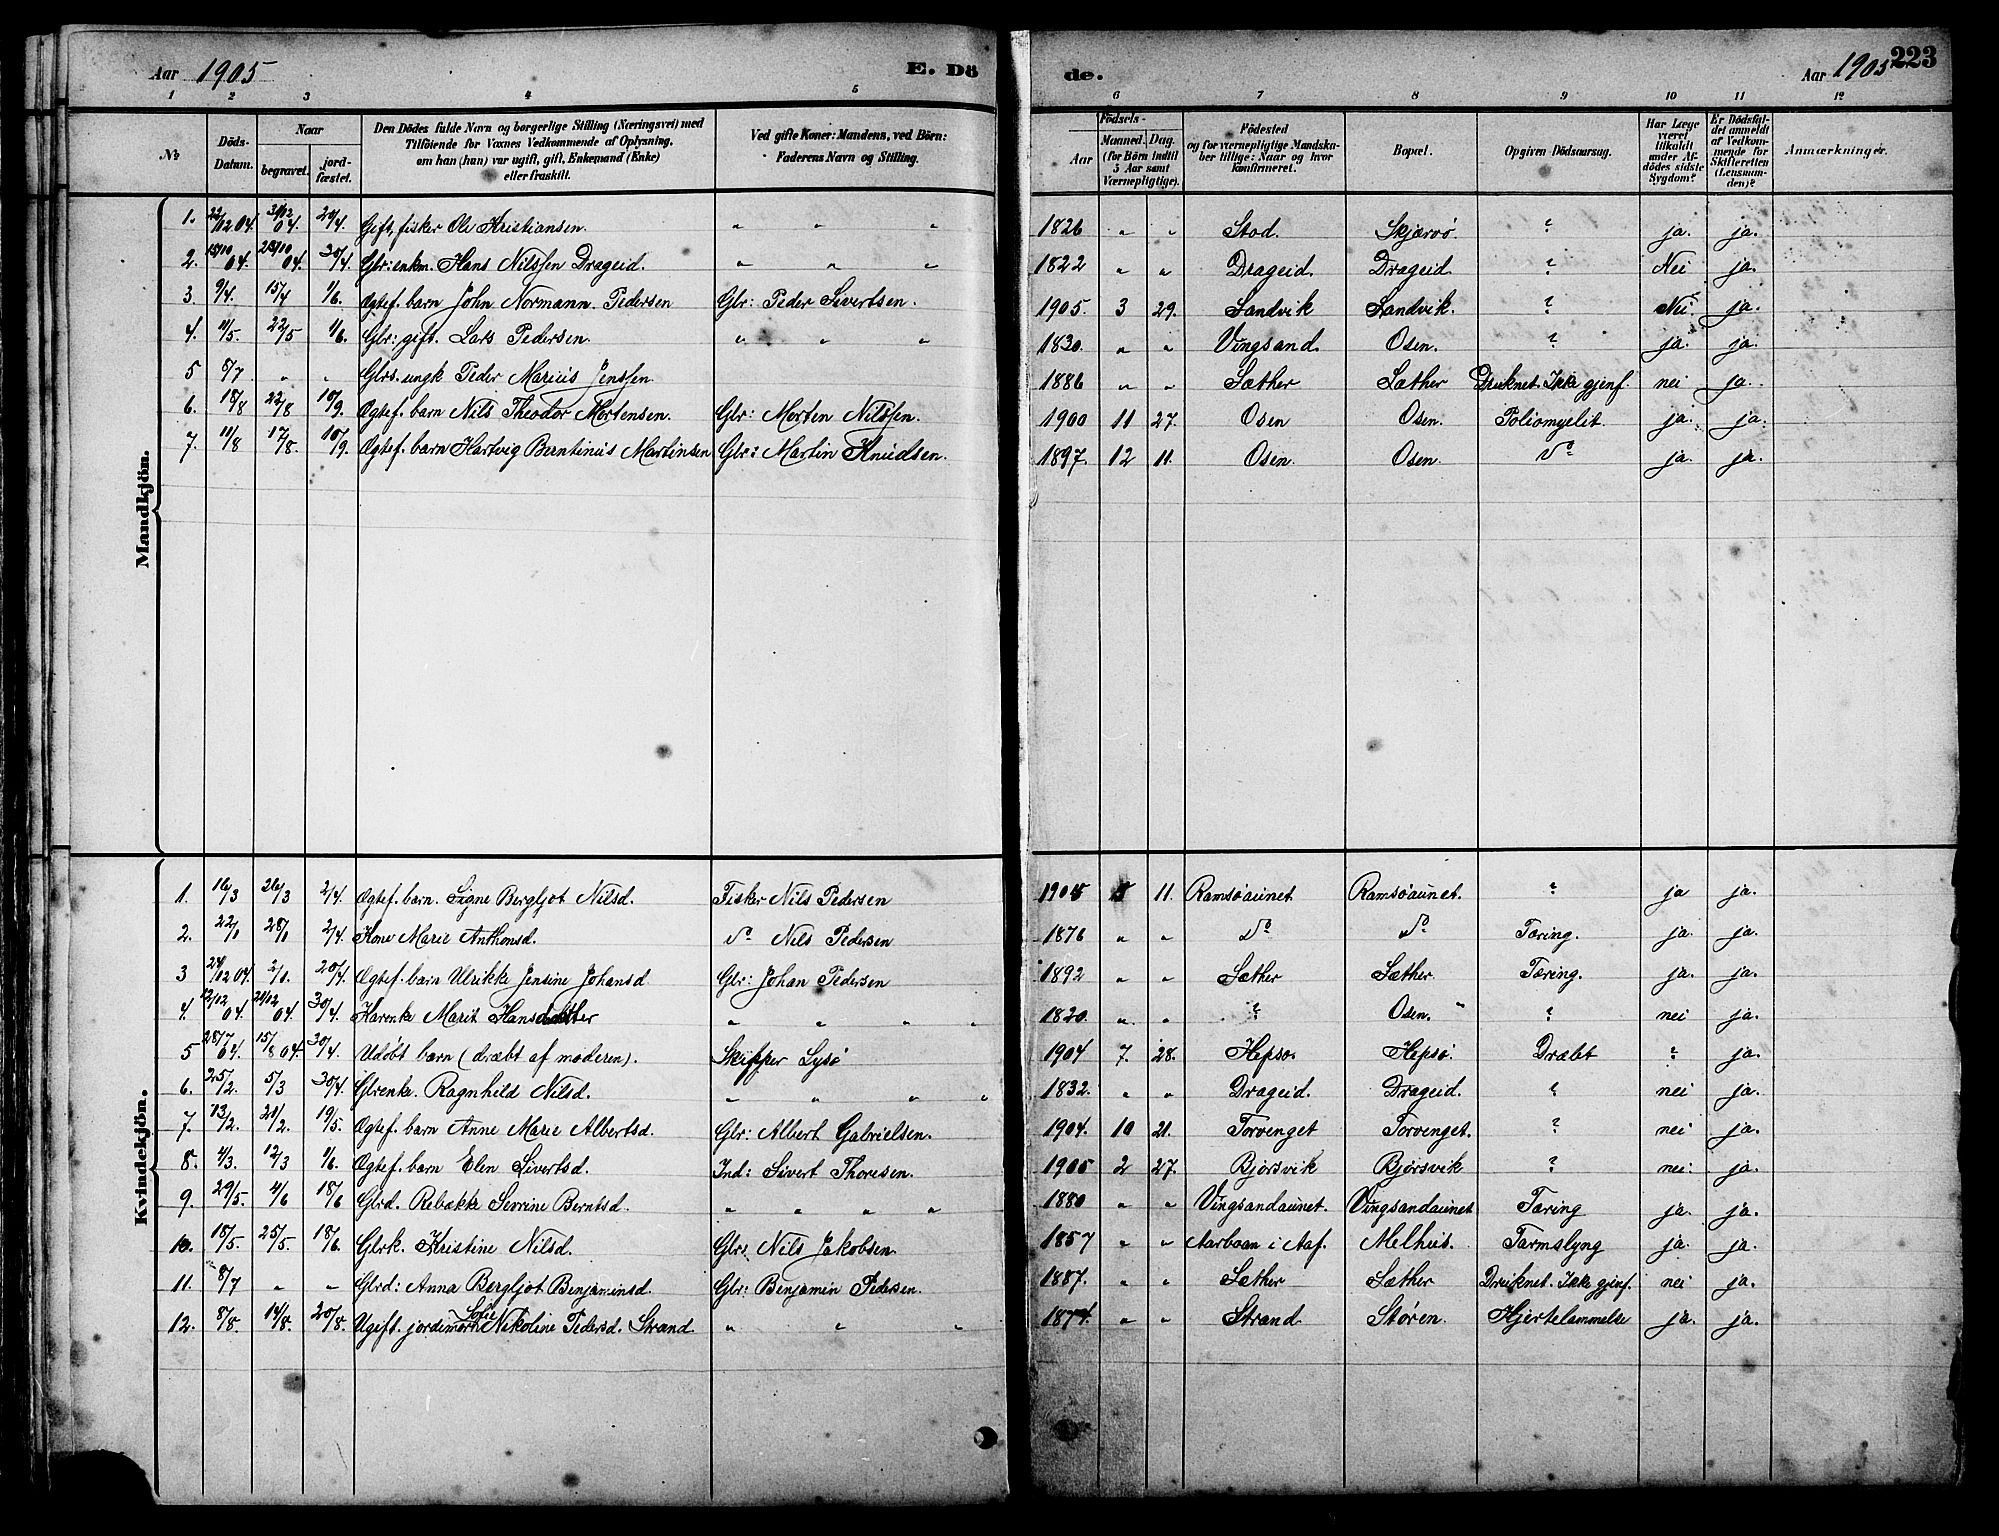 Aar 1905 E. Dö de. Aar 1905 223
1 2 3 4 5 6 7 8 9 10 11 12
No Döds-Datum. Naar begravet. jordfæstet. Den Dödes fulde Navn og borgerlige Stilling (Næringsvei) med Tilföiende for Voxnes Vedkommende af Oplysning, om han (hun) var ugift, gift, Enkemand (Enke) eller fraskilt. Ved gifte Koner: Mandens, ved Börn: Faderens Navn og Stilling. Födsels- Aar Maaned. Dag. (for Börn indtil 5 Aar samt Værnepligtige). Födested og for værnepligtige Mandskaber tillige: Naar og hvor konfirmeret. Bopæl. Opgiven Dödsaarsag. Har Læge været tilkaldt under Afdödes sidste Sygdom? Er Dödsfaldet anmeldt af Vedkommende for Skifteretten (Lensmanden)? Anmærkninger.
Mandkjön.
1. 22/12 04. 31/12 04. 24/4. Gift, fisker Ole Kristiansen. " " " 1826 " " Stod. Skjærvö. ? ja. ja.
2. 15/10 04. 23/10 04. 30/4. Gbr: enkm. Hans Nilssen Drageid. " " " 1822 " " Drageid. Drageid. ? Nei ja.
3. 9/4. 15/4 1/6. Ægtef. barn John Normann Pedersen Gbr: Peder Sivertsen. 1905. 3 29. Sandvik Sandvik. ? Nei ja.
4. 11/5. 22/5 1/6. Gbr: gift. Lars Pedersen. " " " 1830. " " Vingsand. Osen. ? ja. ja.
5 8/7 " " Gbrs. ungk Peder Marius Jenssen. 1886 " " Sæther Sæther Druknet. Ikke gjenf. nei ja.
6. 18/8 22/8 10/9. Ægtef. barn Nils Theodor Mortensen. Gbr: Morten Nilssen. 1900 11 27. Osen Osen. Poliomyelit. ja. ja.
7. 11/8 17/8. 10/9. Ægtef. barn Hartvig Berntinus Martinsen Gbr: Martin Knudsen. 1897. 12 11. Osen. Osen. do ja. ja.
Kvindekjön.
1. 16/3 26/3 2/4. Ægtef. barn. Signe Bergljot Nilsd. Fisker Nils Pedersen 11. Ramsöaunet Ramsöaunet. ? ja ja.
2. 22/1 28/1 2/4. Kone Marie Anthonsd. do Nils Pedersen 1876 " " do do Tæring. ja. ja.
3 24/12 04. 2/1. 20/4. Ægtef. barn Ulrikke Jensine Johansd. Gbr: Johan Pedersen 1892 " " Sæther Sæther Tæring. ja. ja.
4. 12/12 04. 20/12 04. 30/4. Marit Hansdatter " " " " 1820. " " ? Osen. " ? nei ja.
5 28/7 04. 15/8 04. 30/4. Udöbt barn (dræbt af moderen). Skipper Lysö 1904 7. 28. Hepsö. Hepsö. Dræbt ? ja.
6. 25/2. 5/3 30/4. Gbrenke. Ragnhild Nilsd. " " " " 1832. " " Drageid. Drageid. ? nei ja.
7. 13/2. 21/2. 19/5. Ægtef. barn Anne Marie Albertsd. Gbr: Albert Gabrielsen. 1904. 10 21. Torvenget Torvenget. ? nei ja.
8. 4/3. 12/3 1/6. Ægtef. barn Elen Sivertsd. Ind: Sivert Thoresen. 1905 2 27. Bjørsvik Bjørsvik ? nei ja.
9. 29/5. 4/6 18/6 Gbrd. Rebekke Serine Berntsd. " " " " 1880 " " Vingsandaunet. Vingsandaunet Tæring ja. ja.
10. 18/5. 25/5. 18/6. Gbrk. Kristine Nilsd. Gbr: Nils Jakobsen. 1857 " " i Aaf. Melhus. Tarmslyng ja. ja.
11. 8/7 " " Gbrd: Anna Bergljot Benjaminsd. Gbr: Benjamin Pedersen. 1887. " " Sæther Sæther Druknet. Ikke gjenf. nei ja.
12. 8/8. 14/8. 20/8. Ugift. jordmoder Sofie Nikoline Pedersd. Strand " " " 1874. " " Strand. Stören. Hjertelammelse ja. ja.